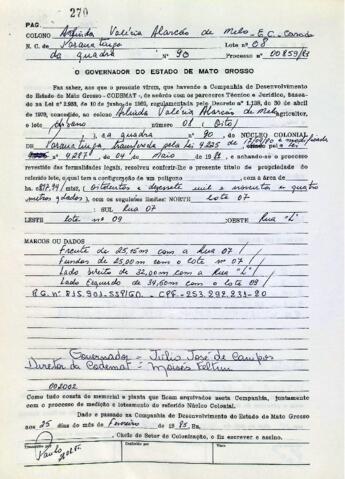 270
PAG.
COLONO Arlinda Valéria Alarcão de Melo - E.C. Casada
N. C. de Paranatinga Lote n.o 08
da quadra N.o 90 Processo n.o 00859/81
O GOVERNADOR DO ESTADO DE MATO GROSSO
Faz saber, aos que o presente virem, que havendo a Companhia de Desenvolvimento
do Estado de Mato Grosso - CODEMAT -, de acôrdo com os pareceres Técnico e Jurídico, basea-
do na Lei n.o 2.933, de 10 de junho de 1969, regulamentada pelo Decreto n.o 1.138, de 30 de abril
de 1970, concedido, ao colono Arlinda Valéria Alarcão de Melo agricultor,
o lote urbano número 08 (Oito)
da quadra n.o 90, do NÚCLEO COLONIAL
DE Paranatinga, transferido pela Lei 4.225 de
n.o 4.287 de 04 de Maio de 1981, e achando-se o processo
revestido das formalidades legais, resolveu conferir-lhe o presente título de propriedade do
referido lote, o qual tem a configuração de um polígono com a área de
817,94/ mts², (Oitocentos e dezessete mil e noventa e quatro
metros qdados), com os seguintes limites: NORTE lote 07
: SUL Rua 07
LESTE lote n.o 09 : OESTE Rua "L"
MARCOS OU DADOS
Frente de 25,15m com a Rua 07/
Fundos de 25,00m com o lote n.o 07/
Lado Direito de 32,00m com a Rua "L"/
Lado Esquerdo de 34,60m com o lote 09/
R.G. n.o 815.903-SSP/GO - CPF-253.292.831-20
Governador - Júlio José de Campos
Diretor da Codemat - Moisés Feltrin
002002
Como tudo consta do memorial e planta que ficam arquivados nesta Companhia, juntamente
com o processo de medição e loteamento do referido Núcleo Colonial.
Dado e passado na Companhia de Desenvolvimento do Estado de Mato Grosso
aos 25 dias do mês de Fevereiro de 1985. Eu,
, Chefe do Setor de Colonização, o fiz escrever e assino.
Paulo